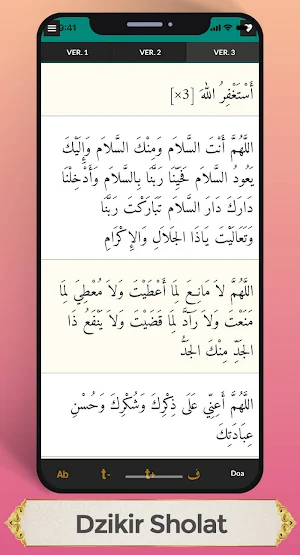 9:41
VER. 1 VER. 2 VER. 3
أَسْتَغْفِرُ اللهَ [3×]
اللَّهُمَّ أَنْتَ السَّلاَمِ وَمِنْكَ السَّلاَمِ وَإِلَيْكَ
يَعُودُ السَّلاَمِ فَحَيِّنَا رَبَّنَا بِالسَّلاَمِ وَأَدْخِلْنَا
دَارَكَ دَارَ السَّلاَمِ تَبَارَكْتَ رَبَّنَا
وَتَعَالَيْتَ يَاذَا الجَلاَلِ وَالإِكْرَامِ
اللَّهُمَّ لاَ مَانِعَ لِمَا أَعْطَيْتَ وَلاَ مُعْطِيَ لِمَا
مَنَعْتَ وَلاَ رَآدَّ لِمَا قَضَيْتَ وَلاَ يَنْفَعُ ذَا
الجَدِّ مِنْكَ الجَدُّ
اللَّهُمَّ أَعِنِّي عَلَى ذِكْرِكَ وَشُكْرِكَ وَحُسْنِ
عِبَادَتِكَ
Ab t- t+ ف Doa
Dzikir Sholat